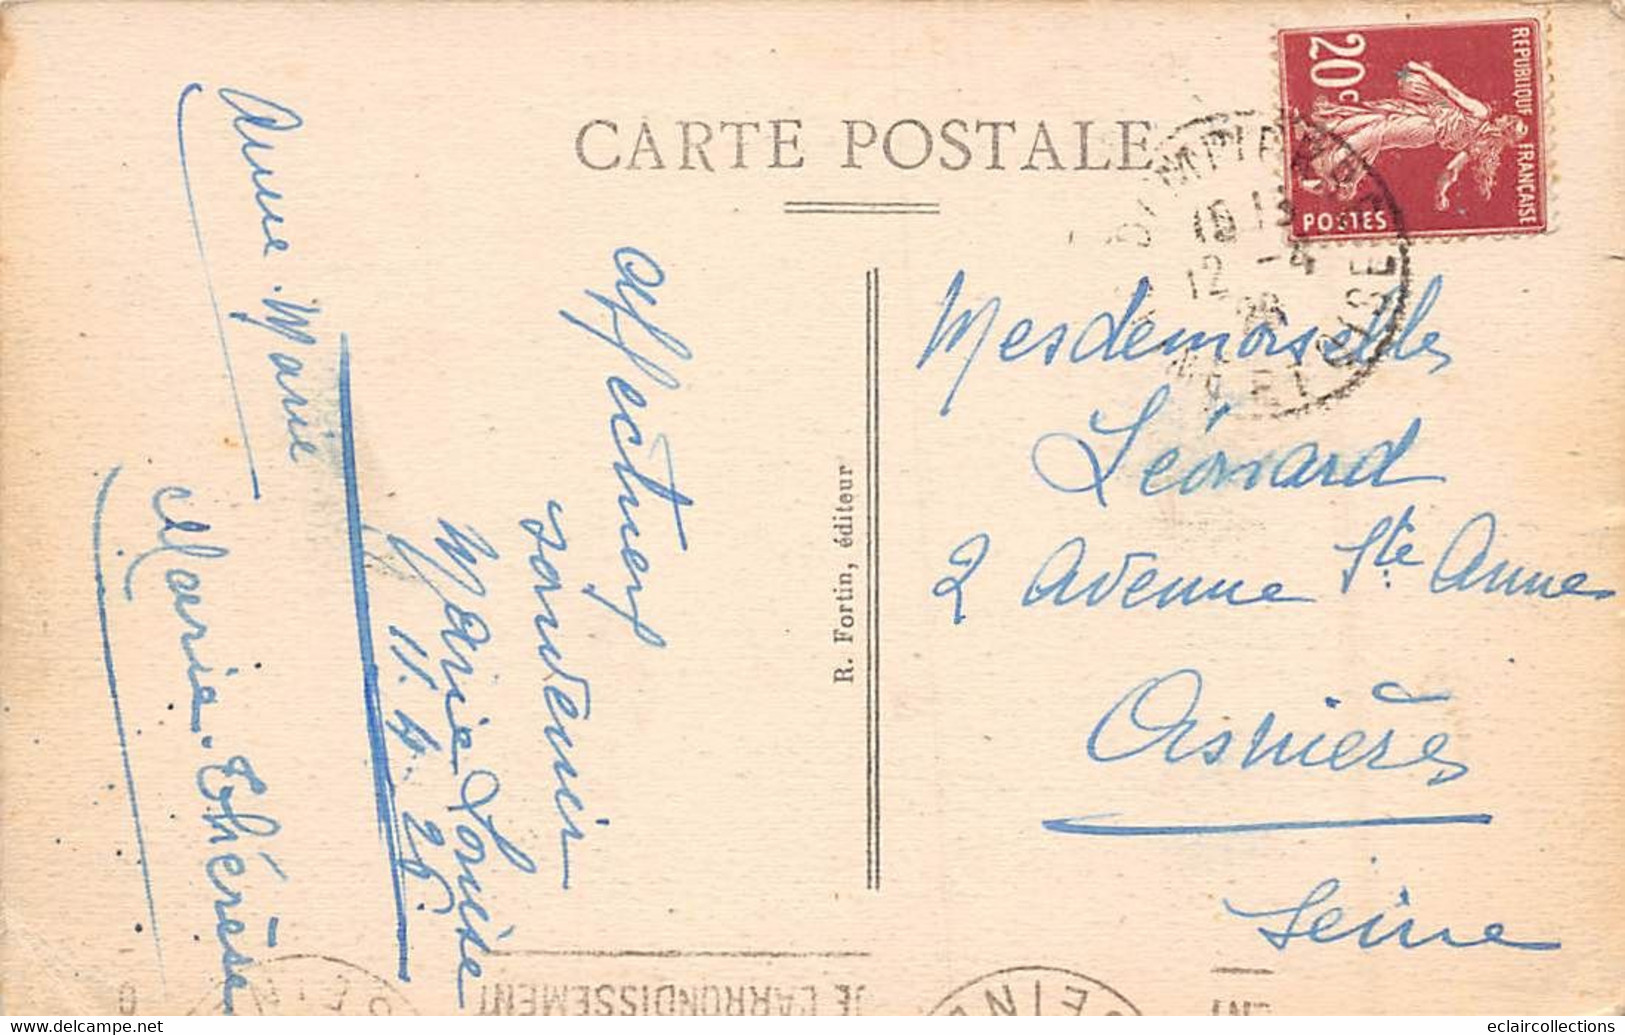 CARTE POSTALE
REPUBLIQUE FRANÇAISE
20c
POSTES
12 -4
26
OISE
Mesdemoiselles
Léonard
2 Avenue Ste Anne
Asnières
Seine
R. Fortin, éditeur
Affectueux
souvenir
Marie Louise
11. 4. 26
Anne. Marie
Marie. Thérèse
DE L'ARRONDISSEMENT
SEINE
eclaircollections